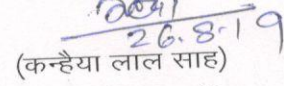 26.8.19
(कन्हैया लाल साह)